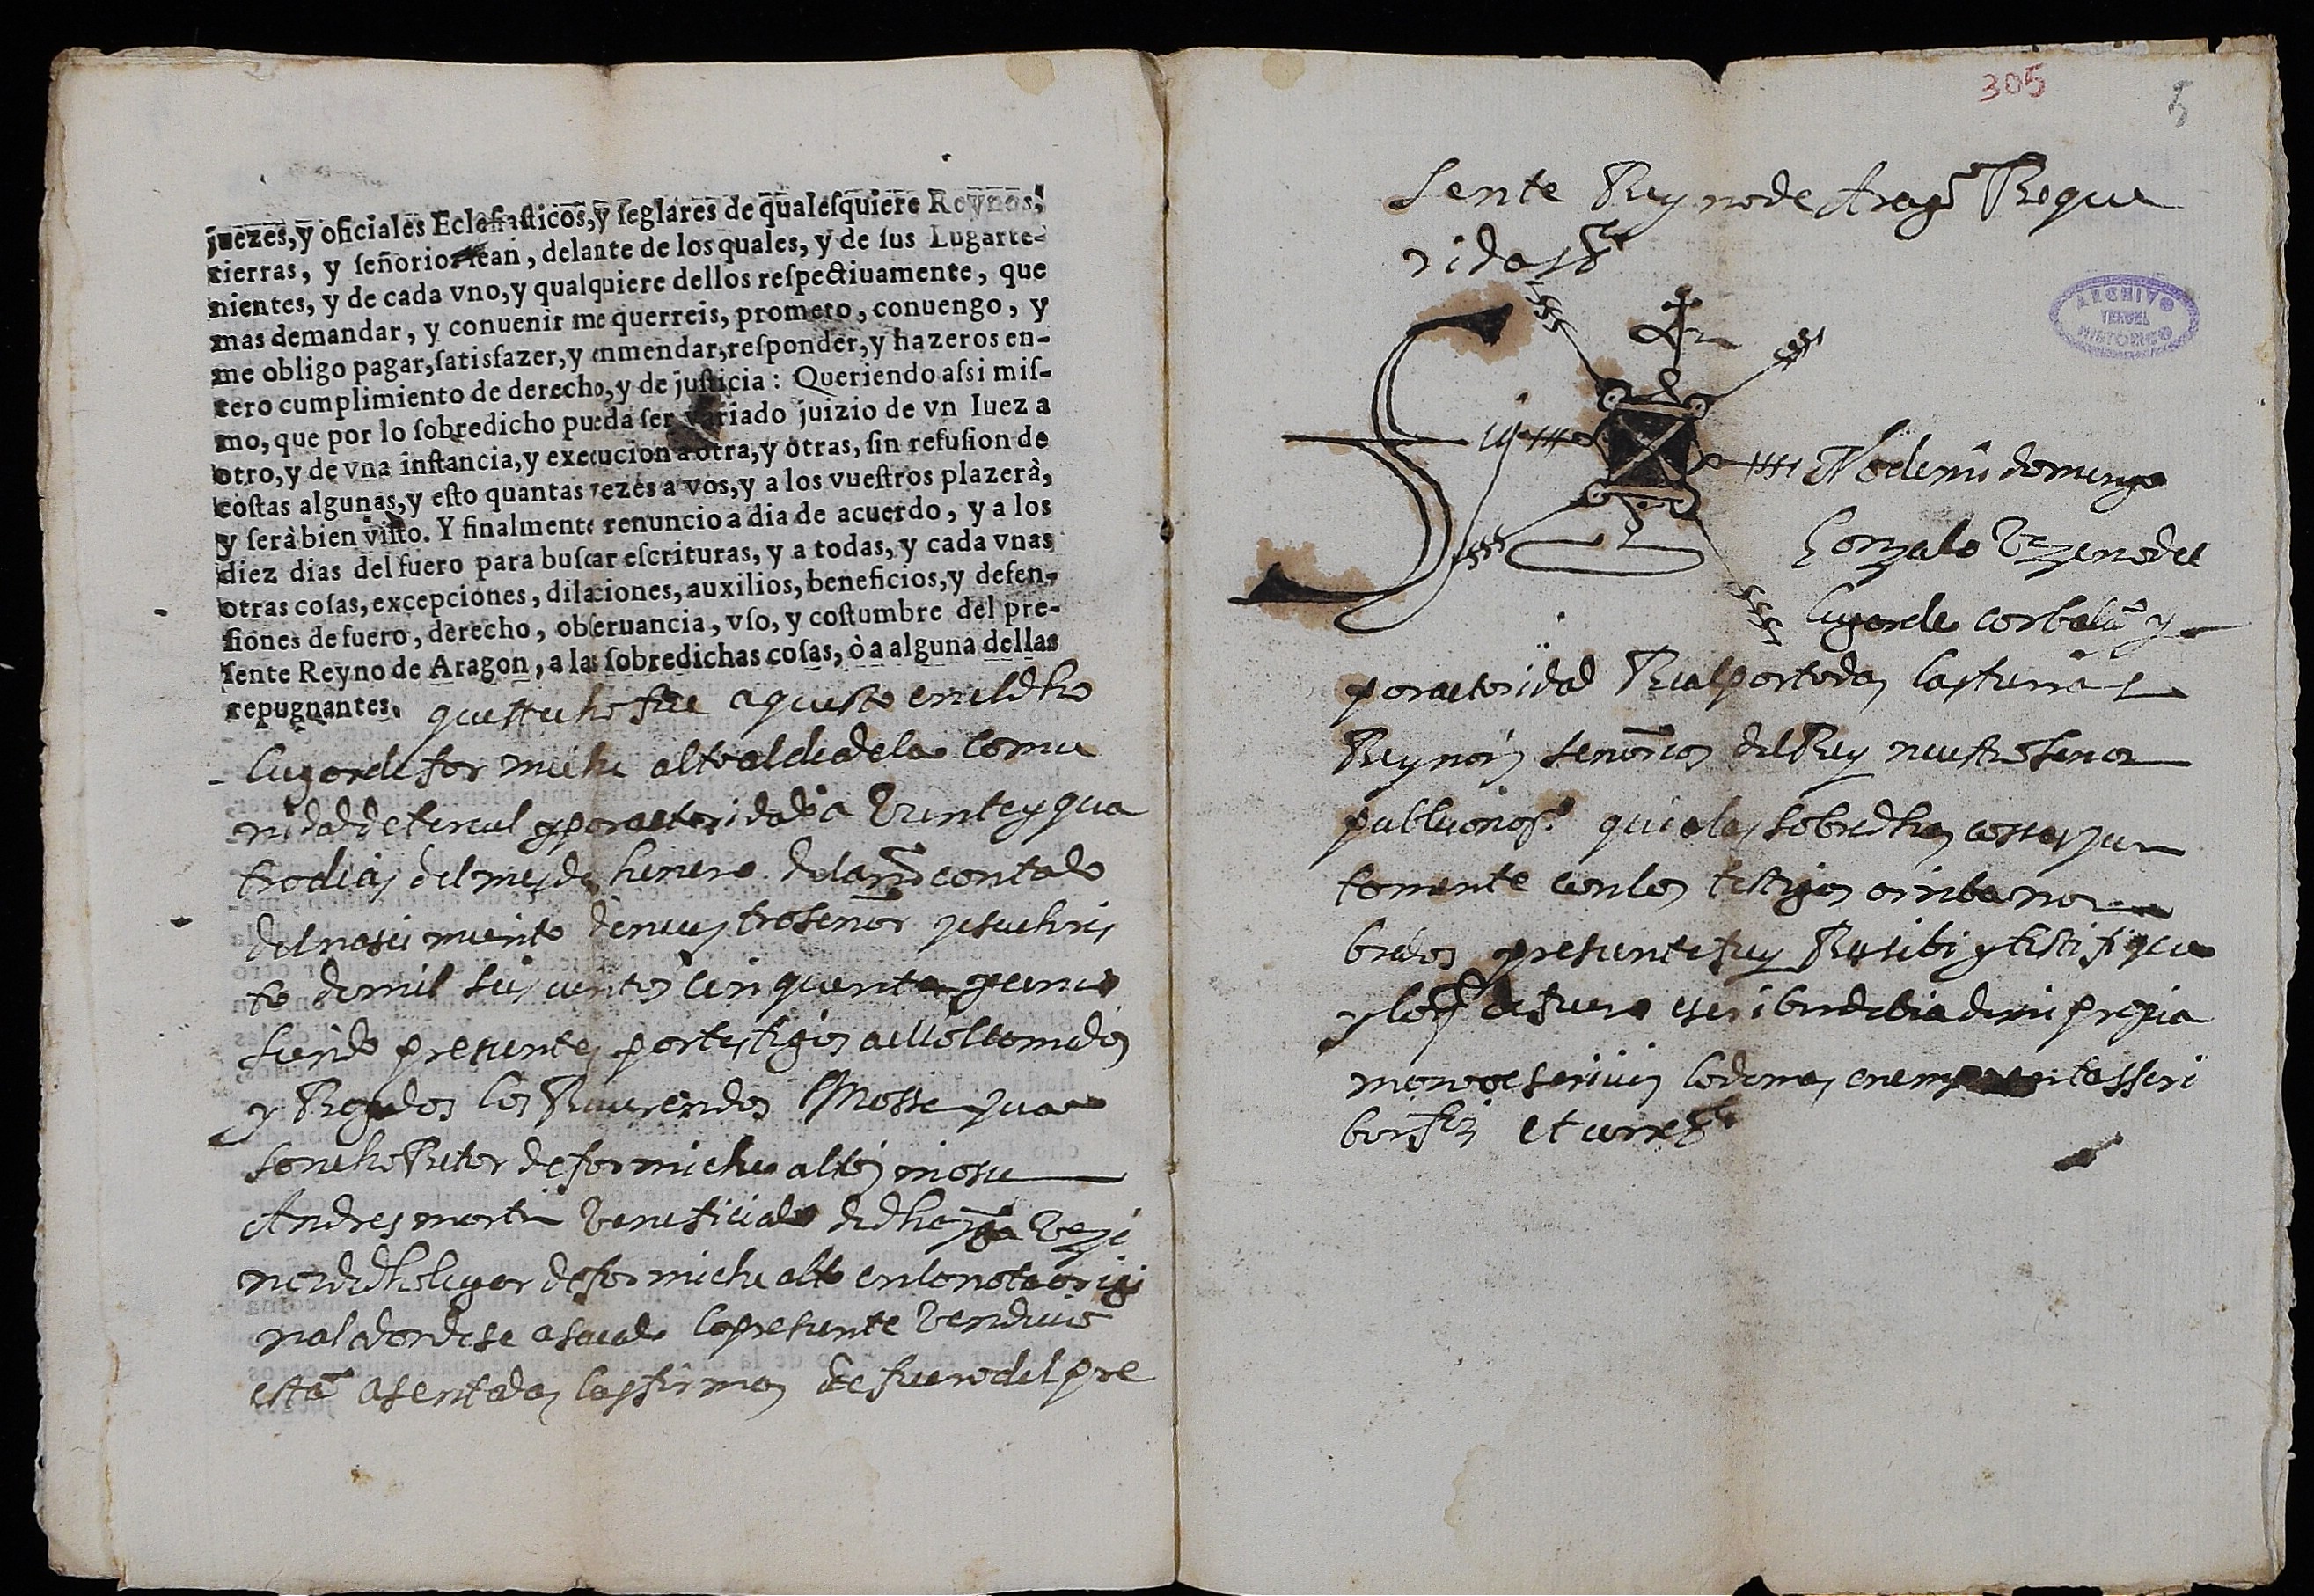 juezes, y oficiales Eclesiasticos, y seglares de qualesquiere Reynos,
tierras, y señorios sean, delante de los quales, y de sus Lugarte-
nientes, y de cada vno, y qualquiere dellos respectiuamente, que
mas demandar, y conuenir me querreis, prometo, conuengo, y
me obligo pagar, satisfazer, y enmendar, responder, y hazeros en-
tero cumplimiento de derecho, y de justicia: Queriendo assi mis-
mo, que por lo sobredicho pueda ser variado juizio de vn Iuez a
otro, y de vna instancia, y execucion a otra, y otras, sin refusion de
costas algunas, y esto quantas vezes a vos, y a los vuestros plazerà,
y serà bien visto. Y finalmente renuncio a dia de acuerdo, y a los
diez dias del fuero para buscar escrituras, y a todas, y cada vnas
otras cosas, excepciones, dilaciones, auxilios, beneficios, y defen-
siones de fuero, derecho, obseruancia, vso, y costumbre del pre-
sente Reyno de Aragon, a las sobredichas cosas, ò a alguna dellas
repugnantes. fue aquesto en el dho
lugar de formiche alto aldea de la comu
nidad de teruel a veinte y qua
tro dias del mes de henero del año contado
del nasimiento de nuestro señor jesuchris
to de mil seiscientos cinquenta
siendo presentes por testigos a ello llamados
y Rogados los Reuerendos Mossen Jua
sancho Retor de formiche alto y mosen
Andres marti beneficiado
dho lugar de formiche alto en la nota origi
nal donde se asienta la presente vendicio
està asentadas las firmas de fuero del pre
305
5
sente Reyno de Aragõ Reque
ridas
ARCHIVO
TERUEL
HISTORICO
Sig no de mi domingo
Gonzalo vezino del
lugar de corbalã y
por autoridad Real por todas las tierras
Reynos y señorios del Rey nuestro señor
publico not. que a las sobredhas cosas jun
tamente con los testigos arriba nom
brados presente fuy Resibi y testifique
y lo q de fuero escribir debia de mi propia
mano escriui y lo demas en emprenta escri
bir fiz et cerre